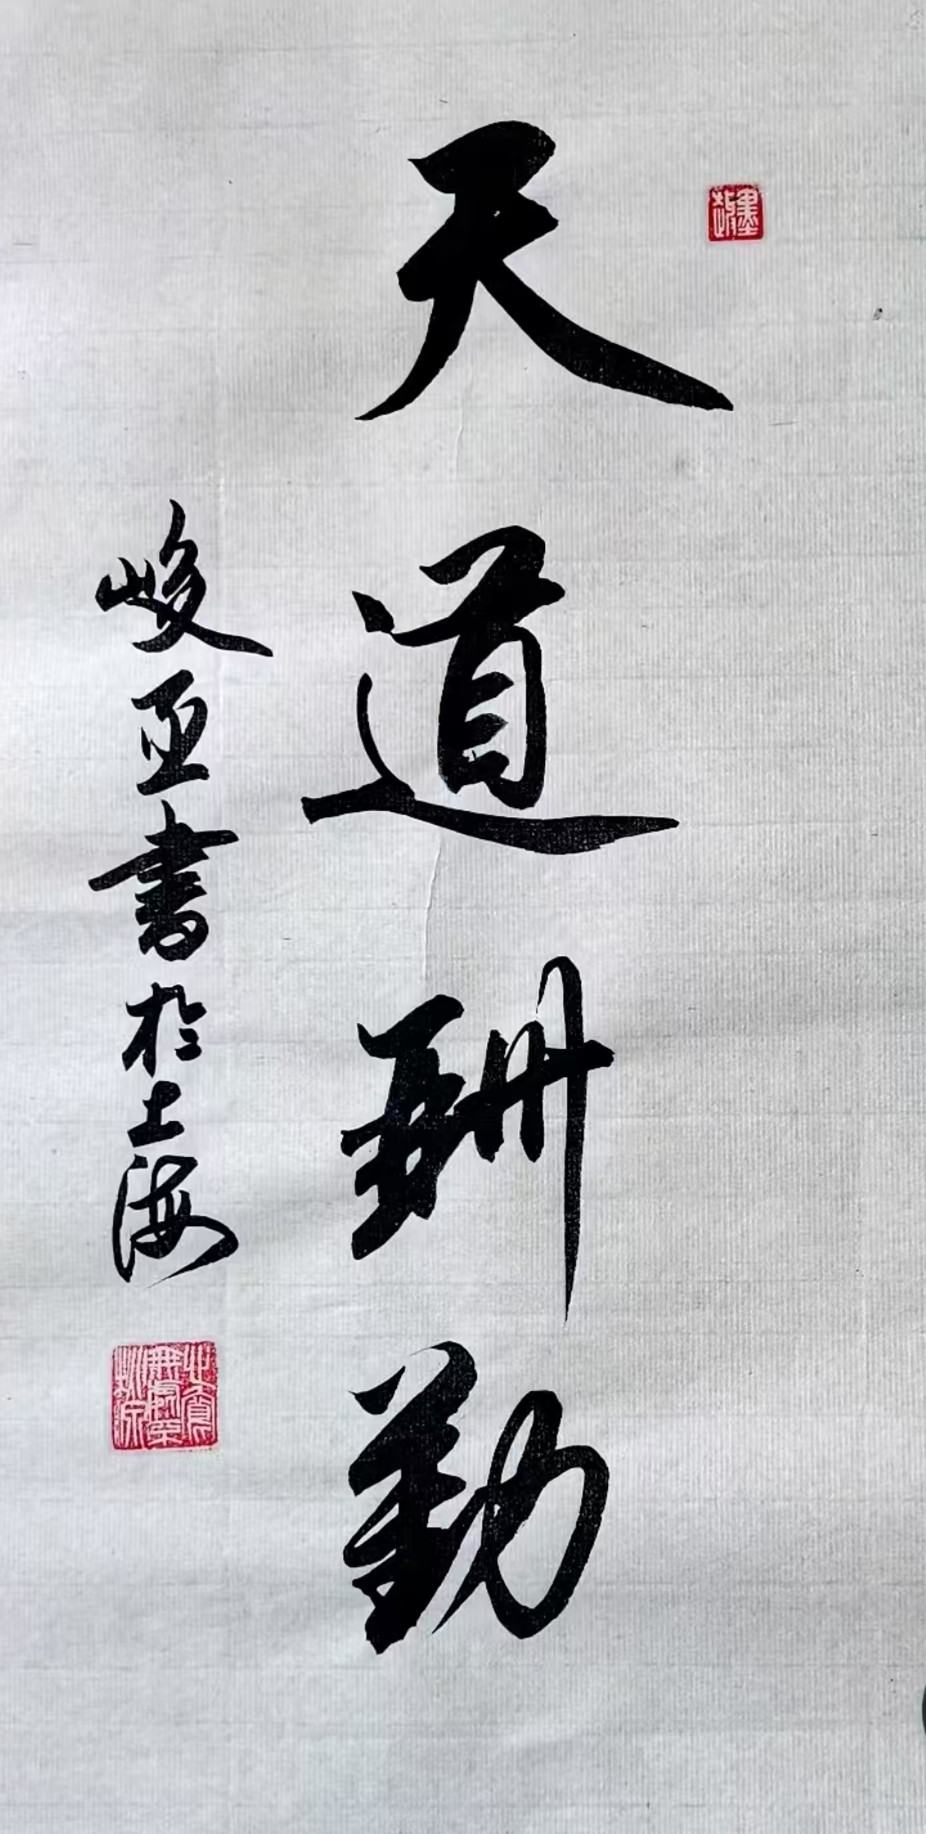 天道酬勤
峻亚書於上海